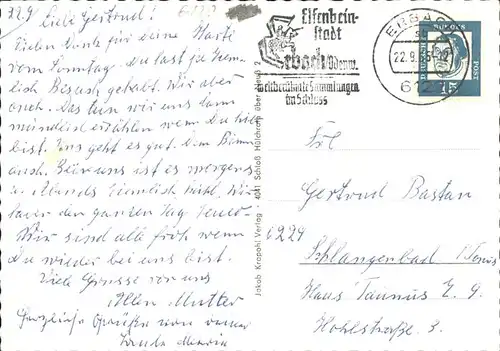 22.9. Liebe Gertrud!
Vielen Dank für deine Karte
vom Sonntag. Du hast ja ziem-
lich Besuch gehabt. Wir aber
auch. Das tun wir uns dann
mündlich erzählen wenn du hier
bist. Uns geht es gut. dem
auch. Bei uns ist es morgens
u. Abends ziemlich kühl. Wir
den ganzen Tag
Wir sind alle froh wenn
du wieder bei uns bist.
Viele Grüsse von uns
Allen Mutter
Herzliche Grüße von
Jakob Krapohl Verlag 4041 Schloß Hülchrath über Neuß 2
Elfenbein-
stadt
Erbach Odenw.
weltberühmte Sammlungen
im Schloss
ERBACH
22.9.
612
DEUTSCHE BUNDESPOST
15
Frl
Gertrud Bastan
6229
Schlangenbad / Taunus
Haus Taunus E. G.
Hohlstraße 3.